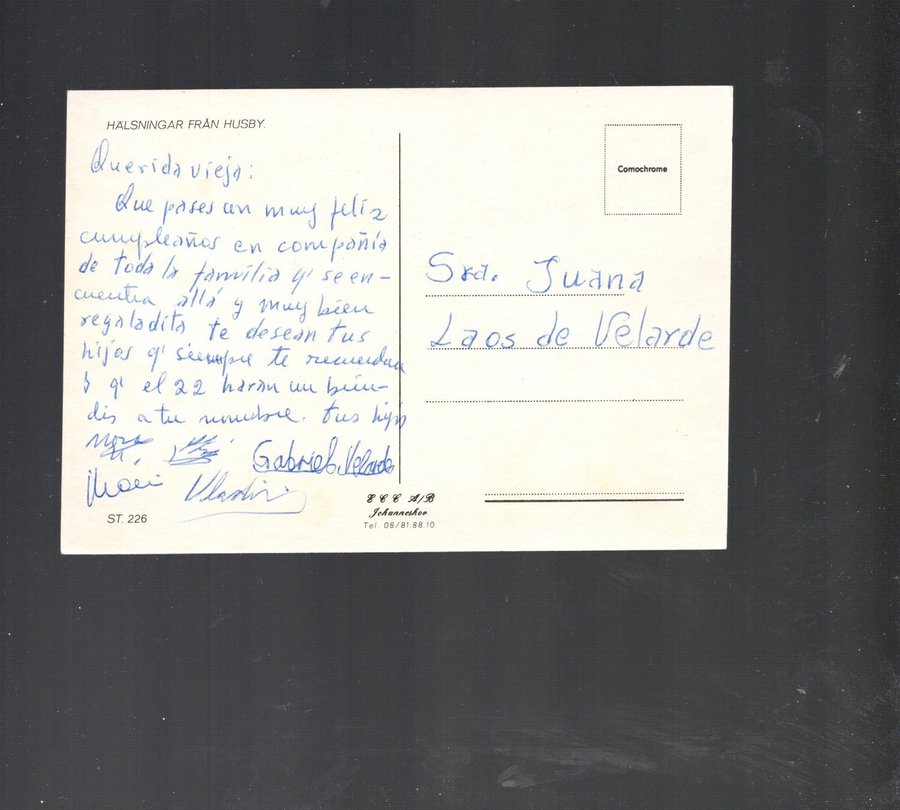 HÄLSNINGAR FRÅN HUSBY.
Querida vieja:
Que pases un muy feliz
cumpleaños en compañía
de toda la familia q' se en-
cuentra allá y muy bien
regaladita te desean tus
hijos q' siempre te recuerdan
y q' el 22 harán un bien-
dis a tu nombre. tus hijos
Gabriel Velarde
Vladimir
ST. 226
E C C A/B
Johanneshov
Tel. 08/81 88 10
Comochrome
Sra. Juana
Laos de Velarde